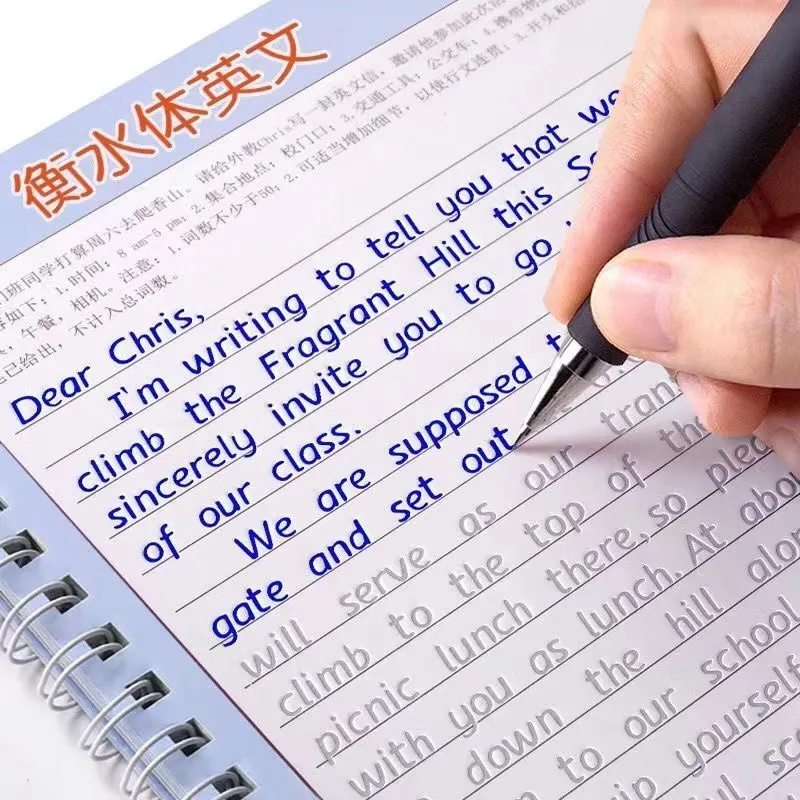 衡水体英文
们班同学打算周六去爬香山。请给外教Chris写一封英文信,邀请他参加此次活
如下:1.时间:8 am-5 pm;2.集合地点:校门口;3.交通工具:公交车;4.携带物
午餐,相机。注意:1.词数不少于50;2.可适当增加细节,以使行文连贯;3.开头和结
已给出,不计入总词数。
Dear Chris,
I'm writing to tell you that we
climb the Fragrant Hill this
sincerely invite you to go
of our class.
We are supposed
gate and set out
will serve as our
climb to the top of
picnic lunch there, so
with you as lunch. At
down the hill
to our school
yourself